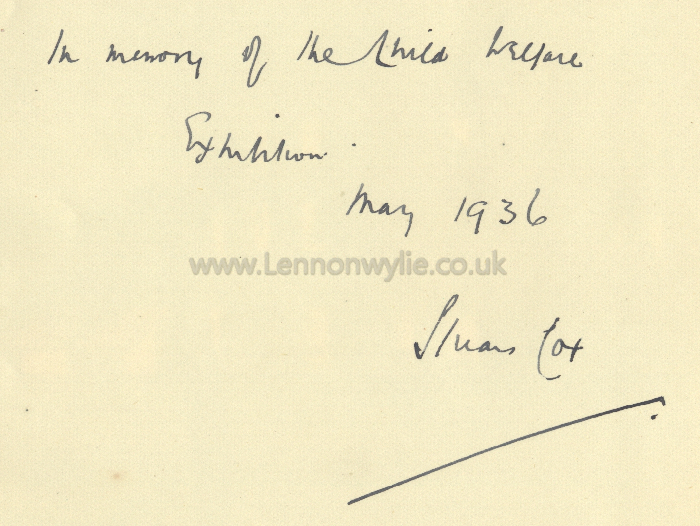 In memory of the Child Welfare
Exhibition.
May 1936
www.Lennonwylie.co.uk
Stuart Cox